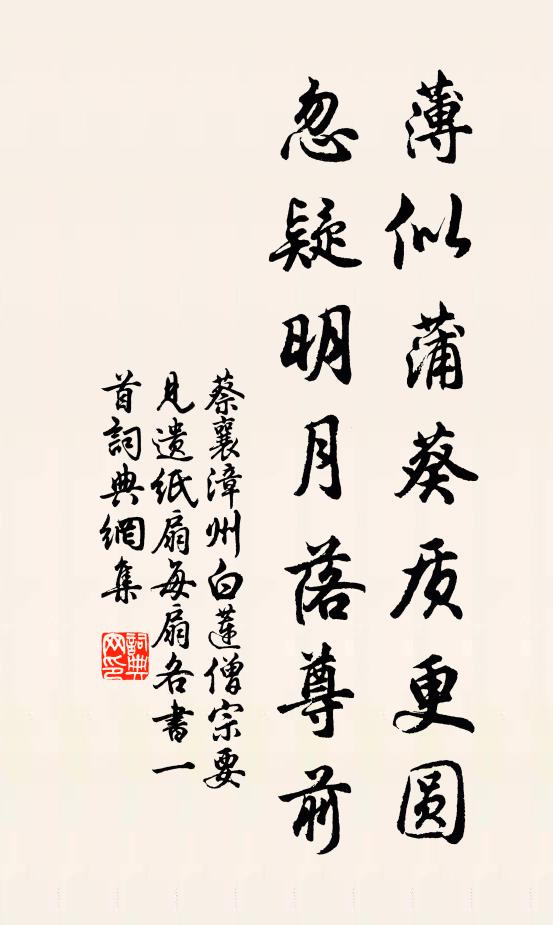 薄似蒲葵质更圆
忽疑明月落尊前
蔡襄漳州白莲僧宗要
见遗纸扇每扇各書一
首詞典網集
詞典
网印